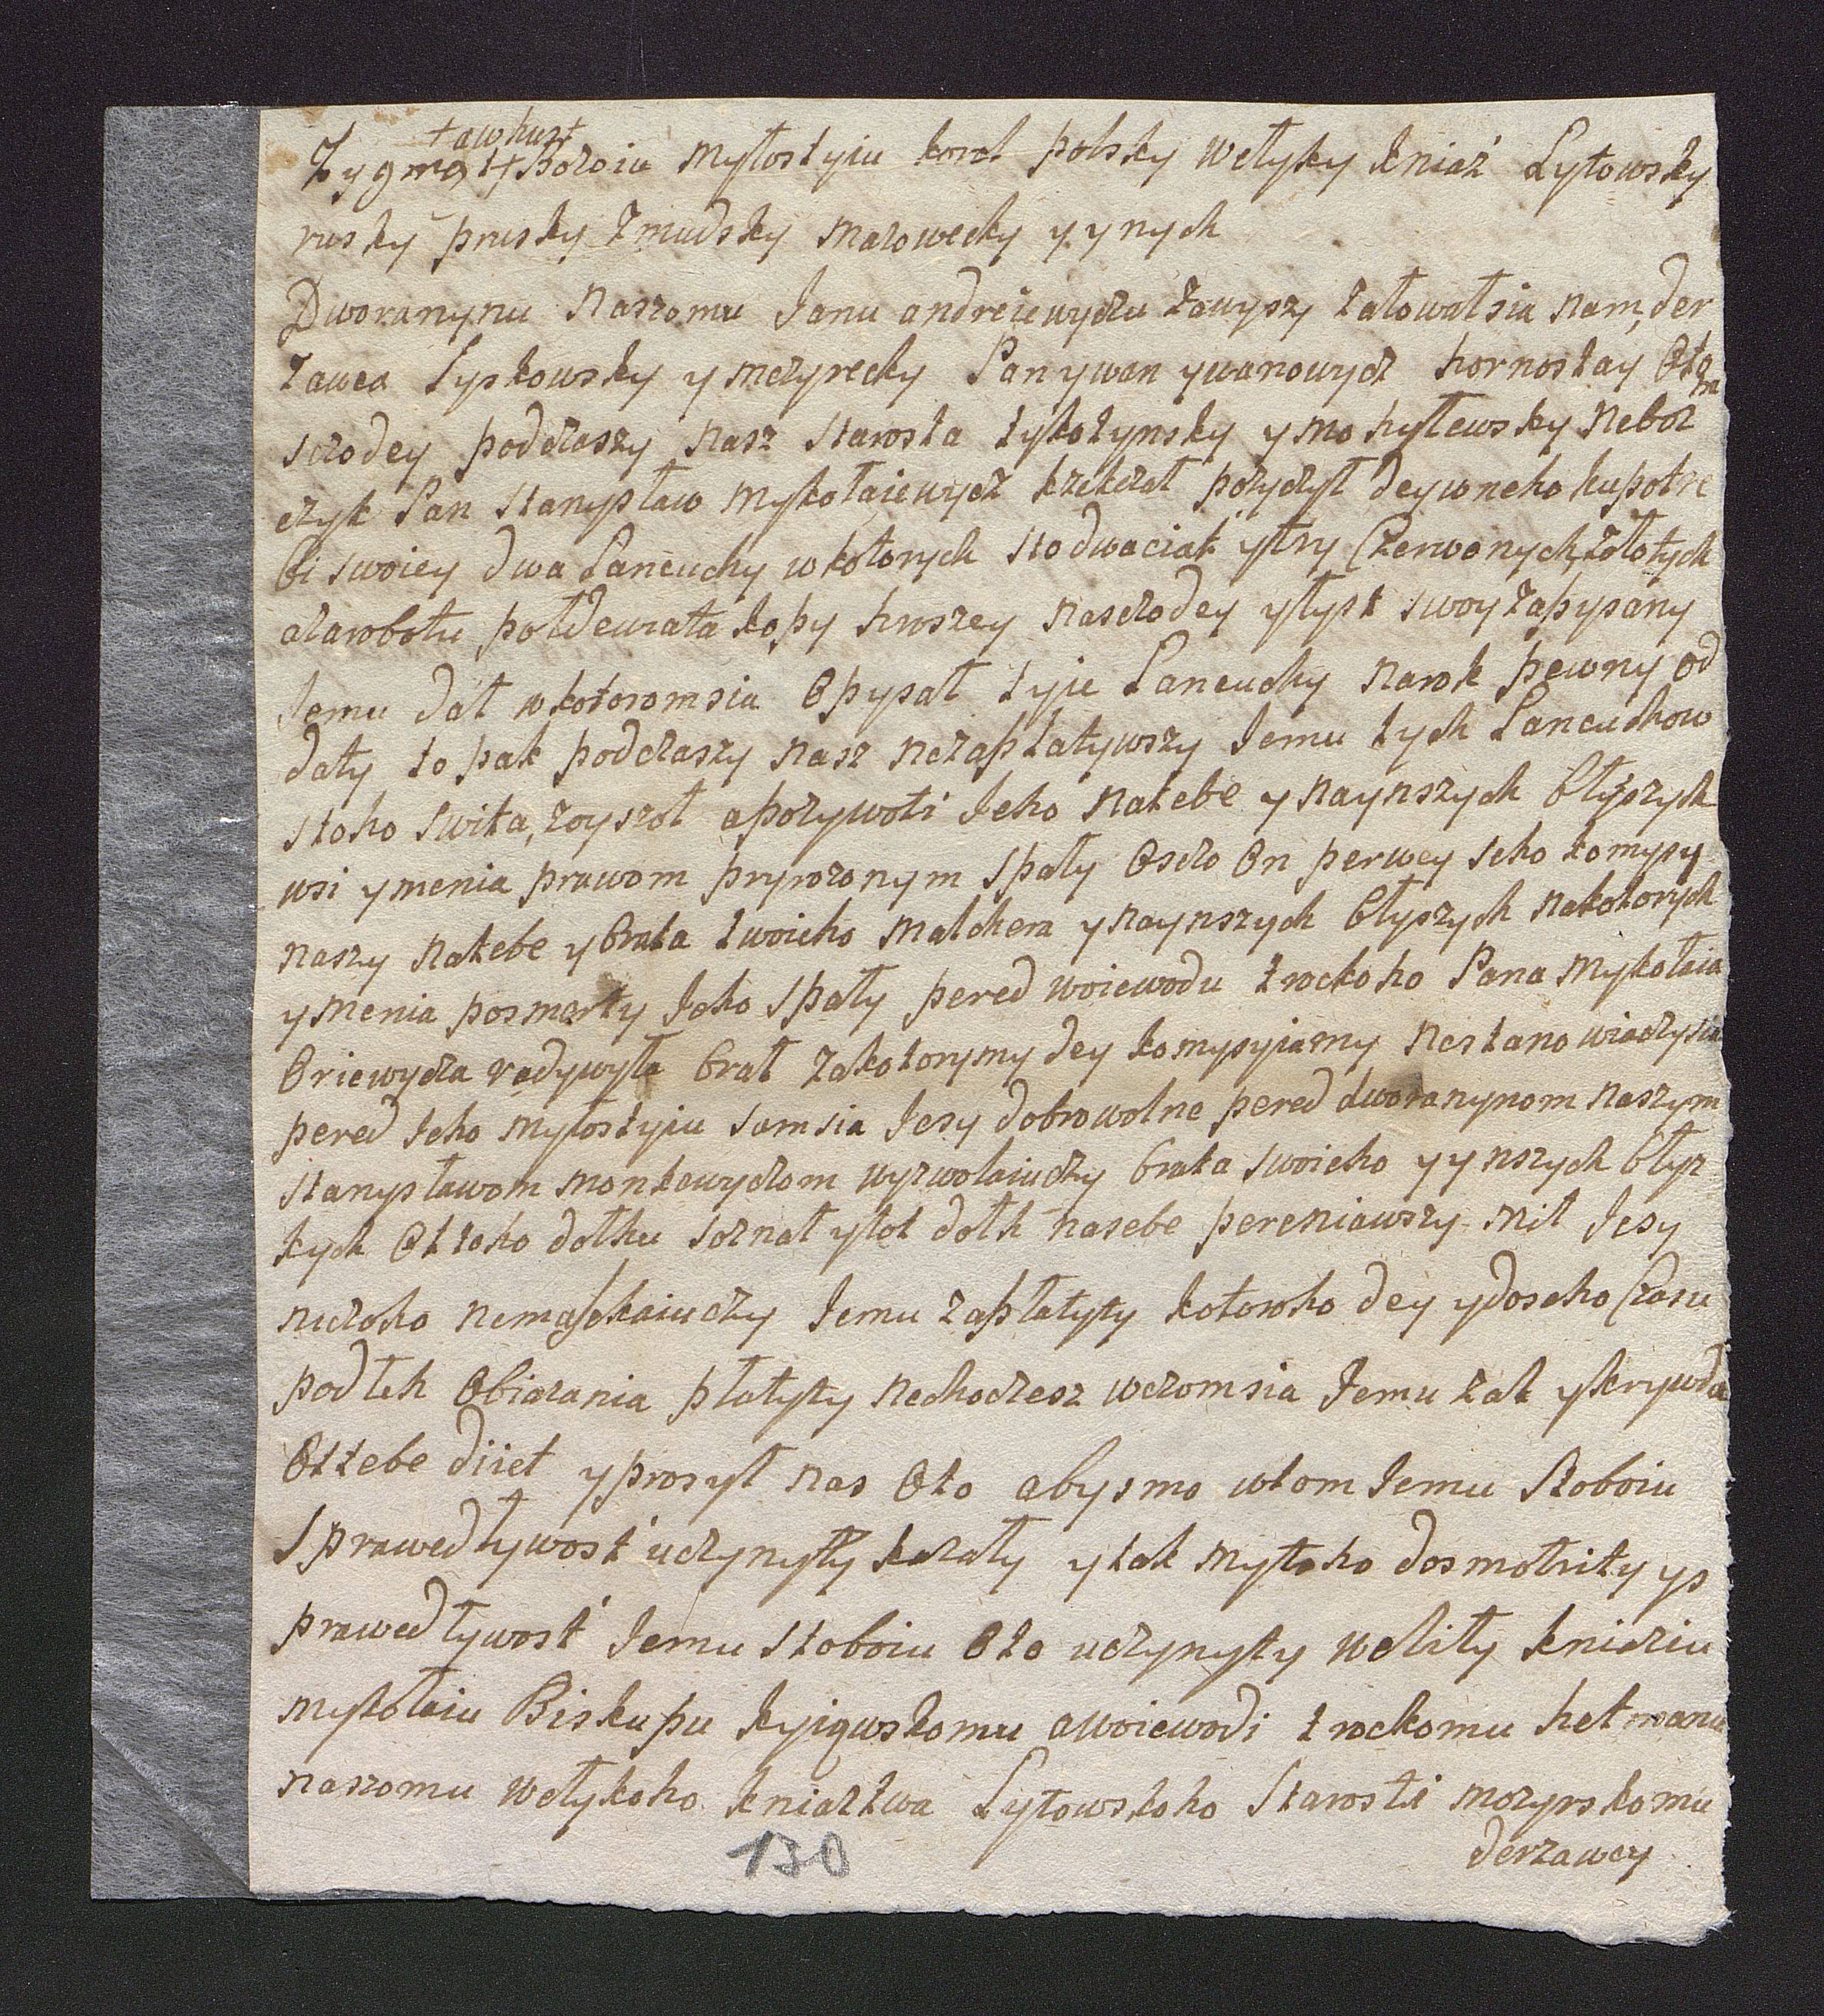 +awhust
Zygmąt + Bożoiu myłostyiu korol polsky wełyky kniaź Lytowsky
rusky prusky żmudsky mazowecky y ynych
Dworanynu naszomu Janu andreiewyczu zawyszy załowałsia nam, der
żawca Lyskowsky y mezyrecky Pan ywan ywanowycz hornostay Otom
sczodey podczaszy nasz starosta tykotynsky y mohylewsky neboz
czyk Pan Stanysław mykołaiewycz pozyczył dey w neho ku potre
bi swoiey dwa Lancuchy w kotorych sto dwaciat y try Czerwonych, zołotych
a zarobotu połdewiata kopy hroszey nasczodey y łyst swoy zapysany
Jemu dał w kotoromsia Opysał tyie Lancuchy na rok pewny od
daty to pak podczaszy nasz nezapłatywszy Jemu tych Lancuchow
stoho swita, zoyszoł a pozywoti Jeho na tebe y na ynszych błyszych
wsi ymenia prawom pryrozonym spały Osczo On perwey seho komysy
naszy na tebe y brata twoieho malchera y na ynszych błyszych na kotorych
ymenia po smerty Jeho spały pered woiewodu trockoho Pana mykołaia
Oriewycza radywyła brał za kotorymy dey komysyiamy ne stanowiaczysia
pered Jeho myłostyiu sam sia Jesy dobrowolne pered dworanynom naszym
stanysławom montowyczom wyzwolaiuczy brata swoieho y ynszych błyz
kych Ot toho dołhu soznał y tot dołh na sebe pereniawszy mił Jesy
niczoho nemeszkaiuczy Jemu zapłatyty kotoroho dey y do seho Czasu
podłeh Obiazania płatyty nechoczesz w czom sia Jemu zal y krywda
Ot tebe diiet y prosył nas Oto abysmo w tom Jemu stoboiu
Sprawedływost' uczynyty kazały y tak my toho dosmotrity y s
prawedływost' Jemu stoboiu Oto uczynyty weliły kniaziu
mykołaiu Biskupu kyiewskomu a woiewodi trockomu hetmanu
naszomu wełykoho kniaztwa Lytowskoho Starosti mozyrskomu
derzawcy
130